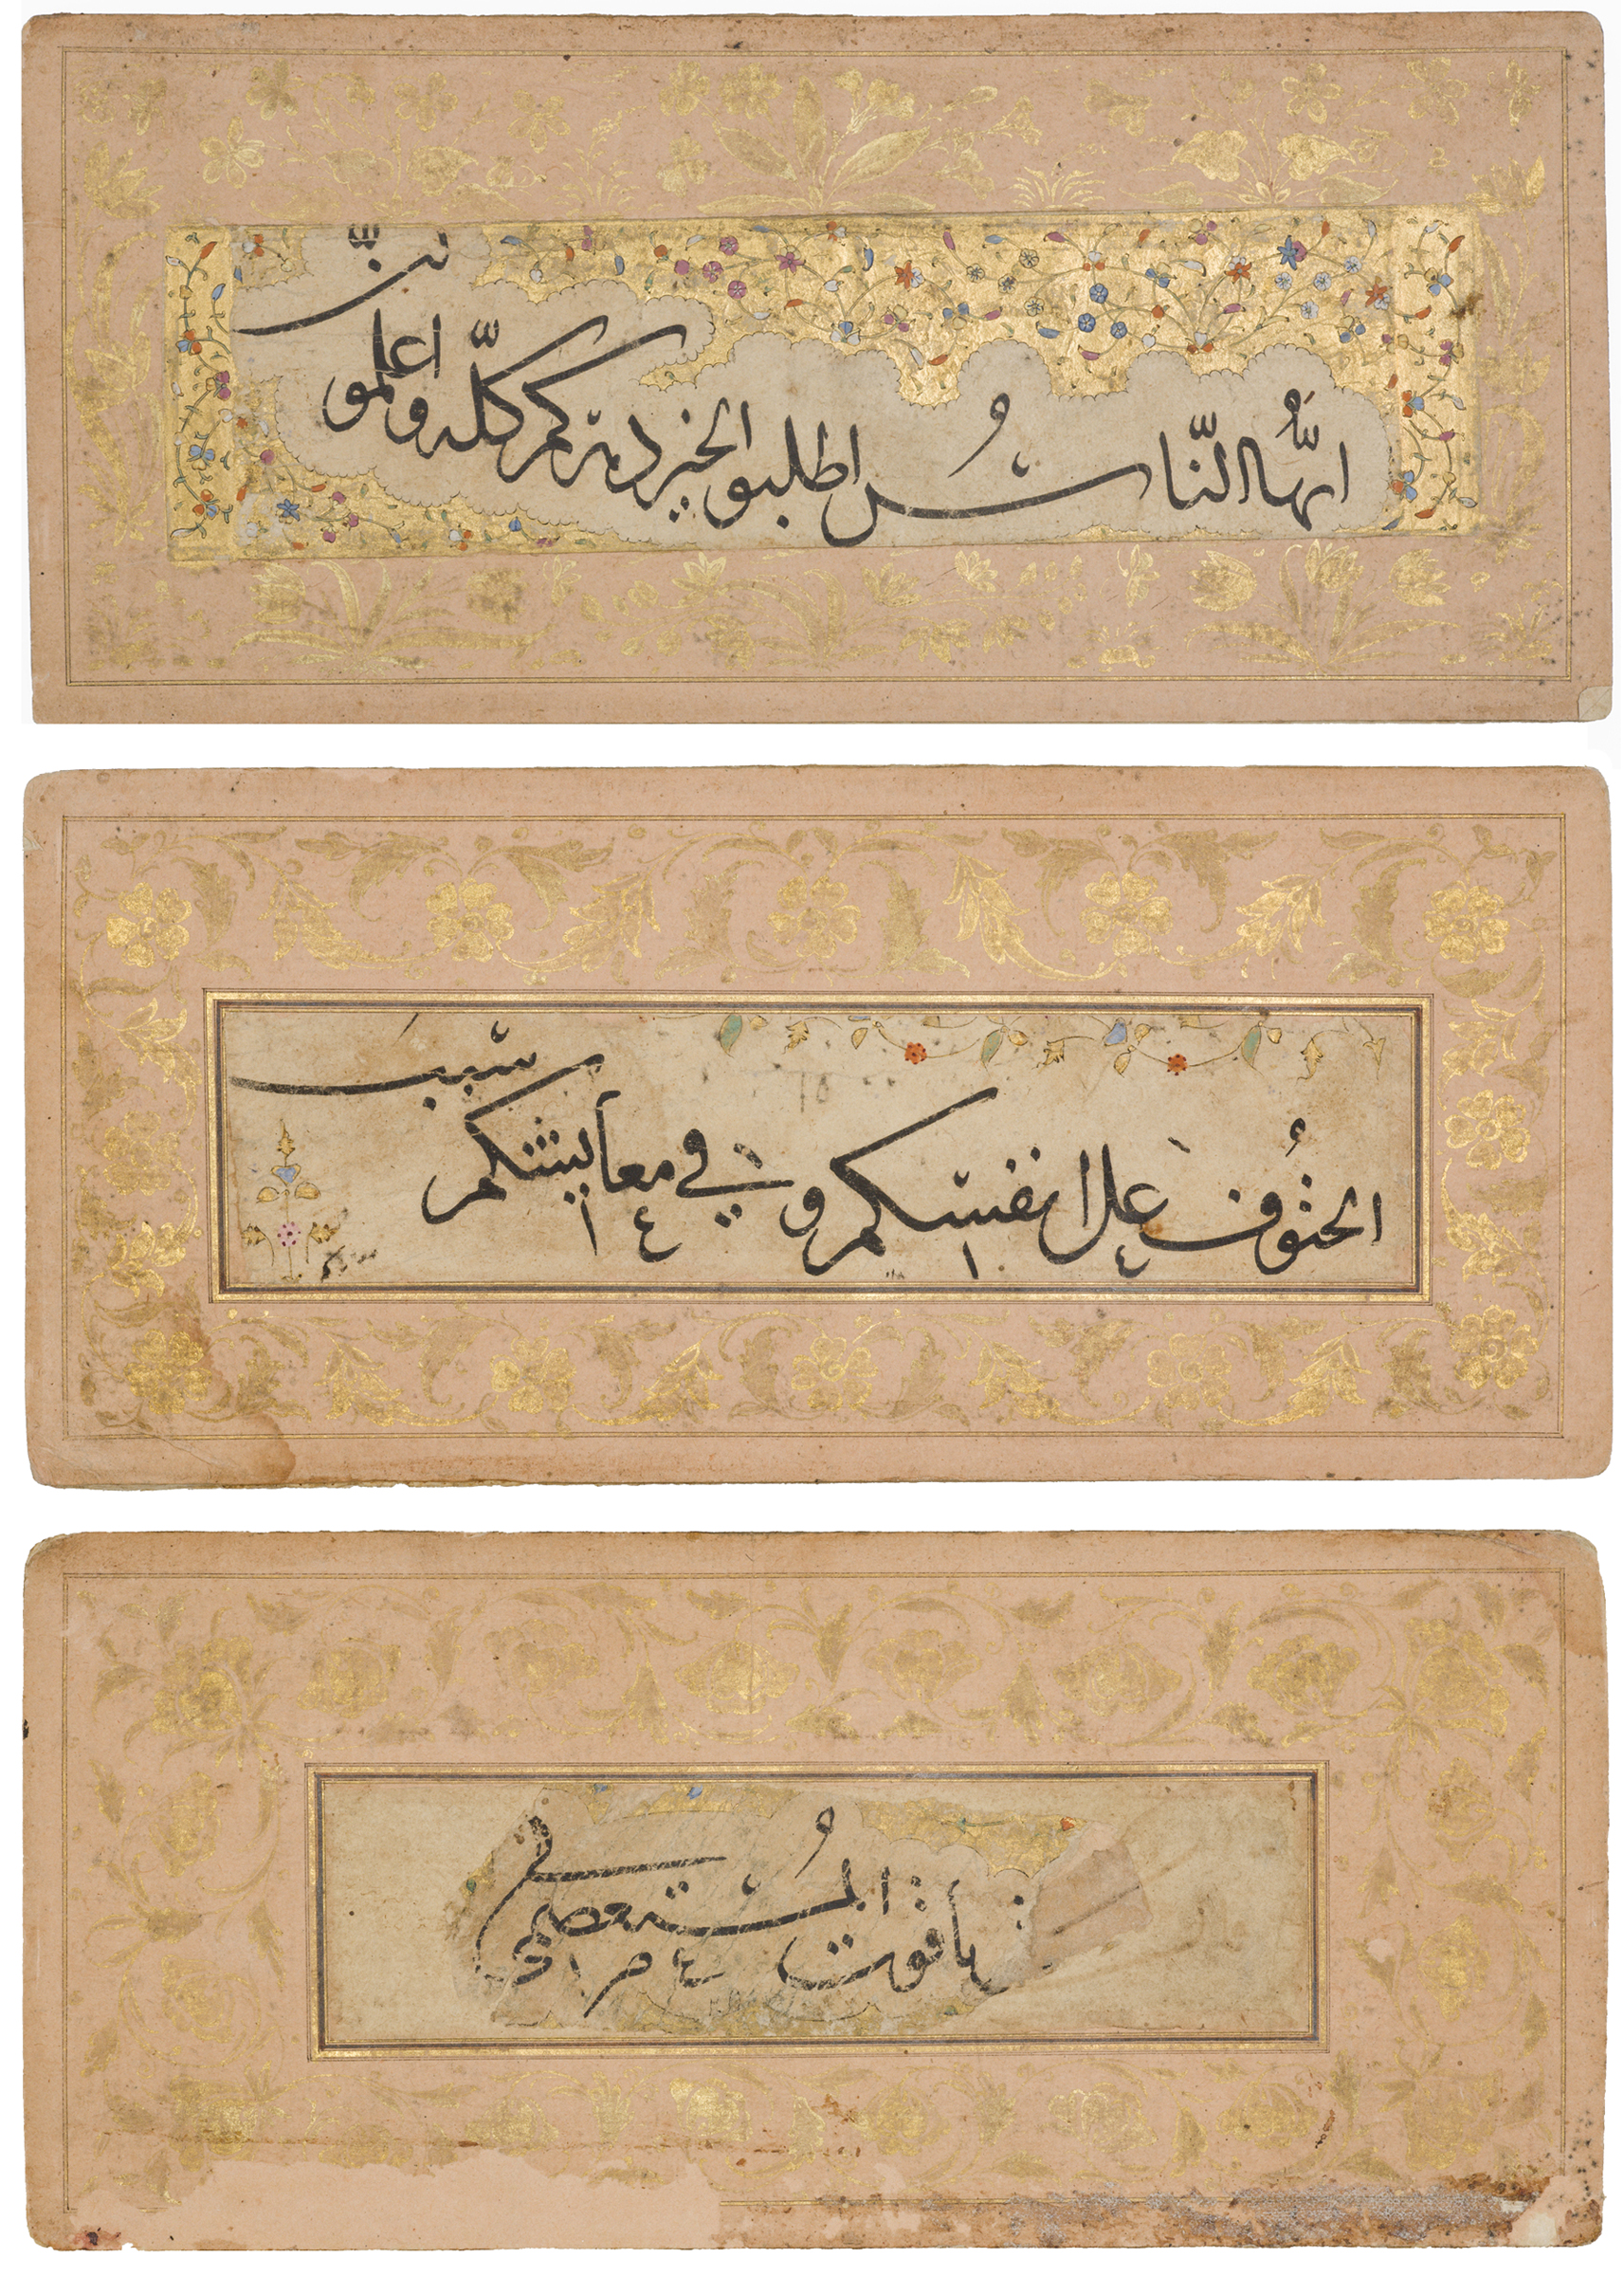 ايّها النّاسُ اطلبو الخير دهركم كلّه واعلمو
على انفسكم و في معايشكم سبب
ياقوت المُستعصمي